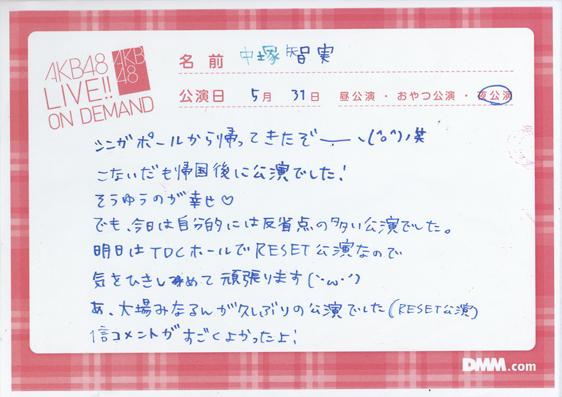 AKB48
LIVE!!
ON DEMAND
AKB
48
名前 中塚智実
公演日 5月 31日 昼公演・おやつ公演・夜公演
シンガポールから帰ってきたぞーー\(^o^)ノ笑
こないだも帰国後に公演でした!
そうゆうのが幸せ♡
でも、今日は自分的には反省点の多い公演でした。
明日はTDCホールでRESET公演なので
気をひきしめて頑張ります(`・ω・´)
あ、大場みなるんが久しぶりの公演でした(RESET公演)
信コメントがすごくよかったよ!
DMM.com